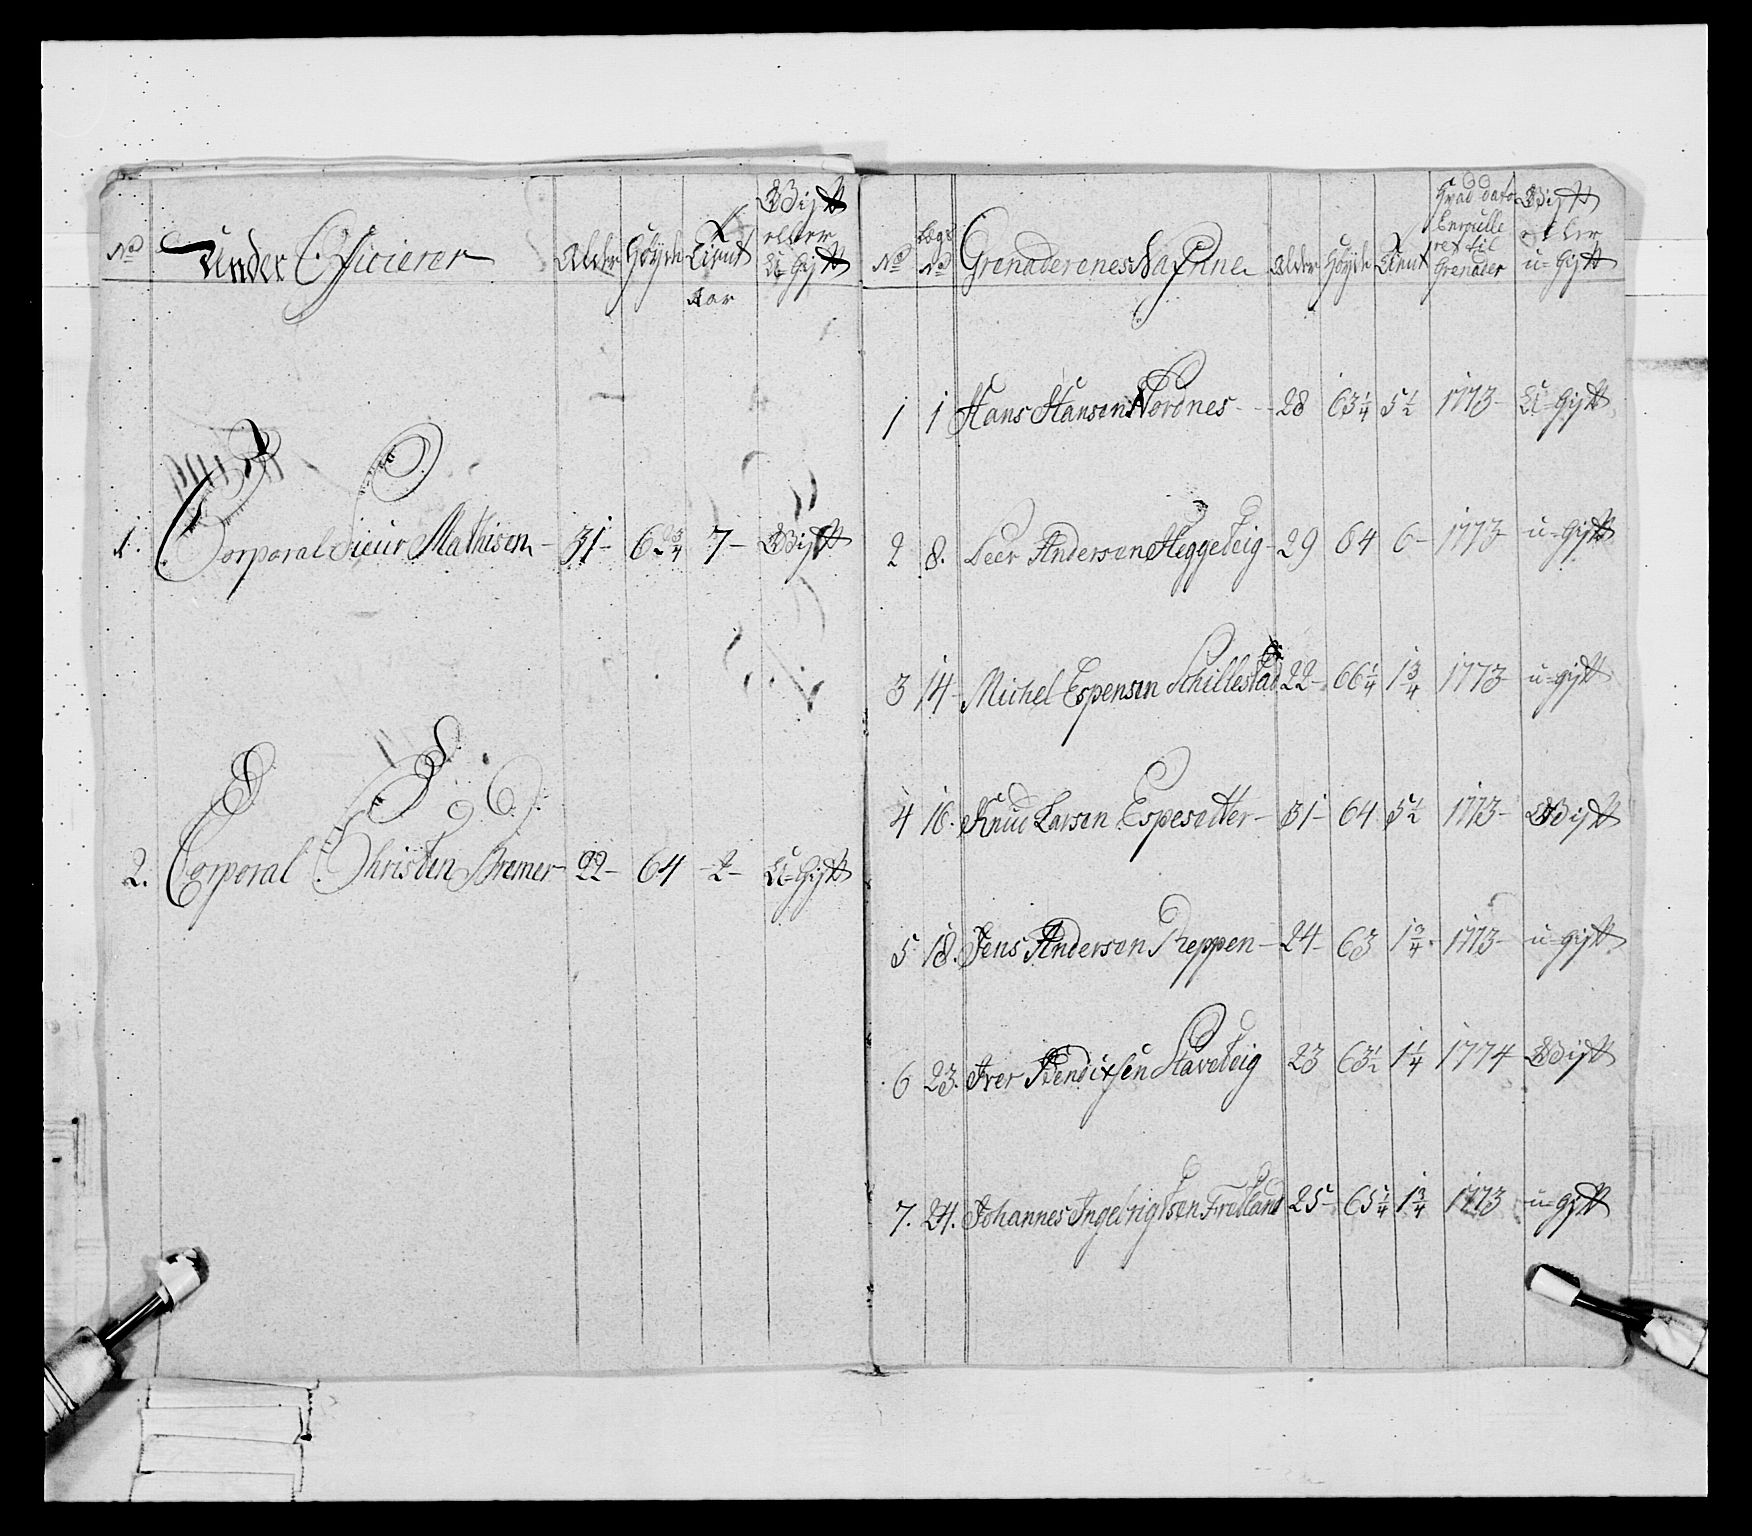 No Under Officierer Alder Höyde Tient Aar Gift eller U-Gift
1. Corporal Sieur Mathisen - 31 - 62 3/4 7 - Gift
2. Corporal Christen Bremer - 22 - 64 - 2 - U-Gift
No Lægs No Grenaderenes Nafne Alder Höyde Tient Hvad dato Enroulleret til Grenader Gift eller u-Gift
1 1 Hans Hansen Nordnes - - 28 63 1/4 5 1/2 1773 - U-Gift
2 8. Peer Andersen Heggeteig - 29 64 6 - 1773 u-Gift
3 14 Michel Espensen Schillestad 22 - 66 1/4 1 3/4 1773 u-gift
4 16. Knud Larsen Espesætter - 31 - 64 5 1/2 1773 - Gift
5 18. Jens Andersen Reppen - 24 - 63 1 3/4. 1773 - u-gift
6 23. Iver Bendixsen Staveteig 23 63 1/2 1 1/4 1774 Gift
7. 24. Johannes Ingebrigtsen Fretland 25 - 65 1/4 1 3/4 1773 u-gift